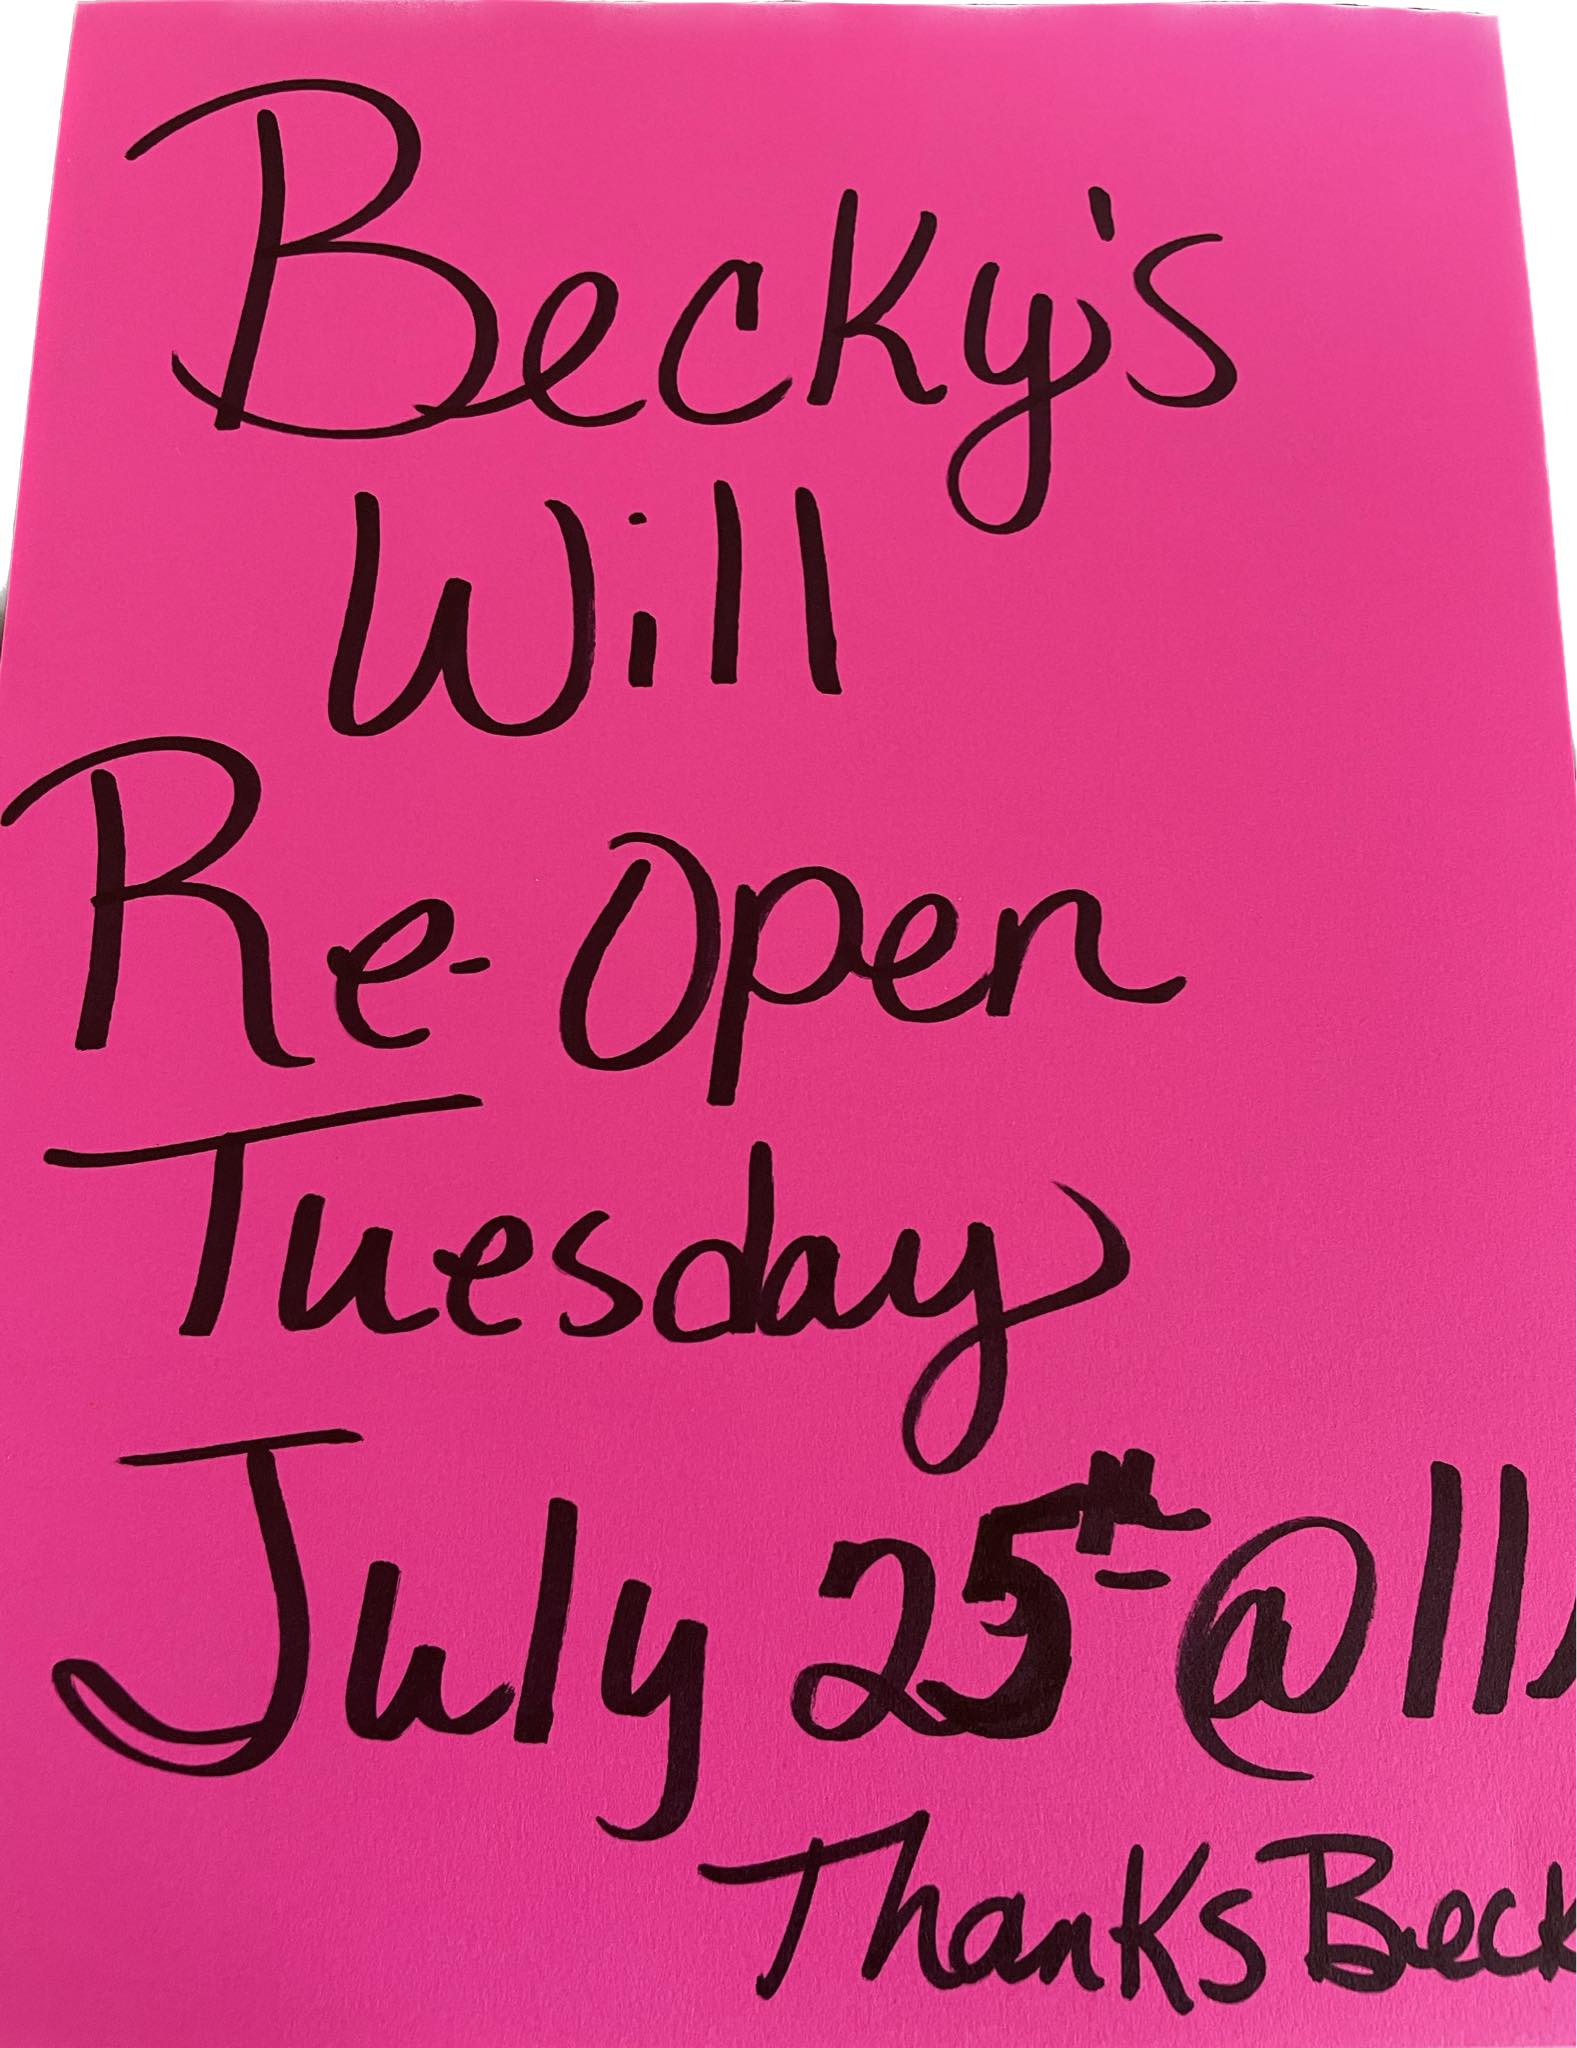 Becky's
Will
Re-Open
Tuesday
July 25th @ 11
Thanks Beck